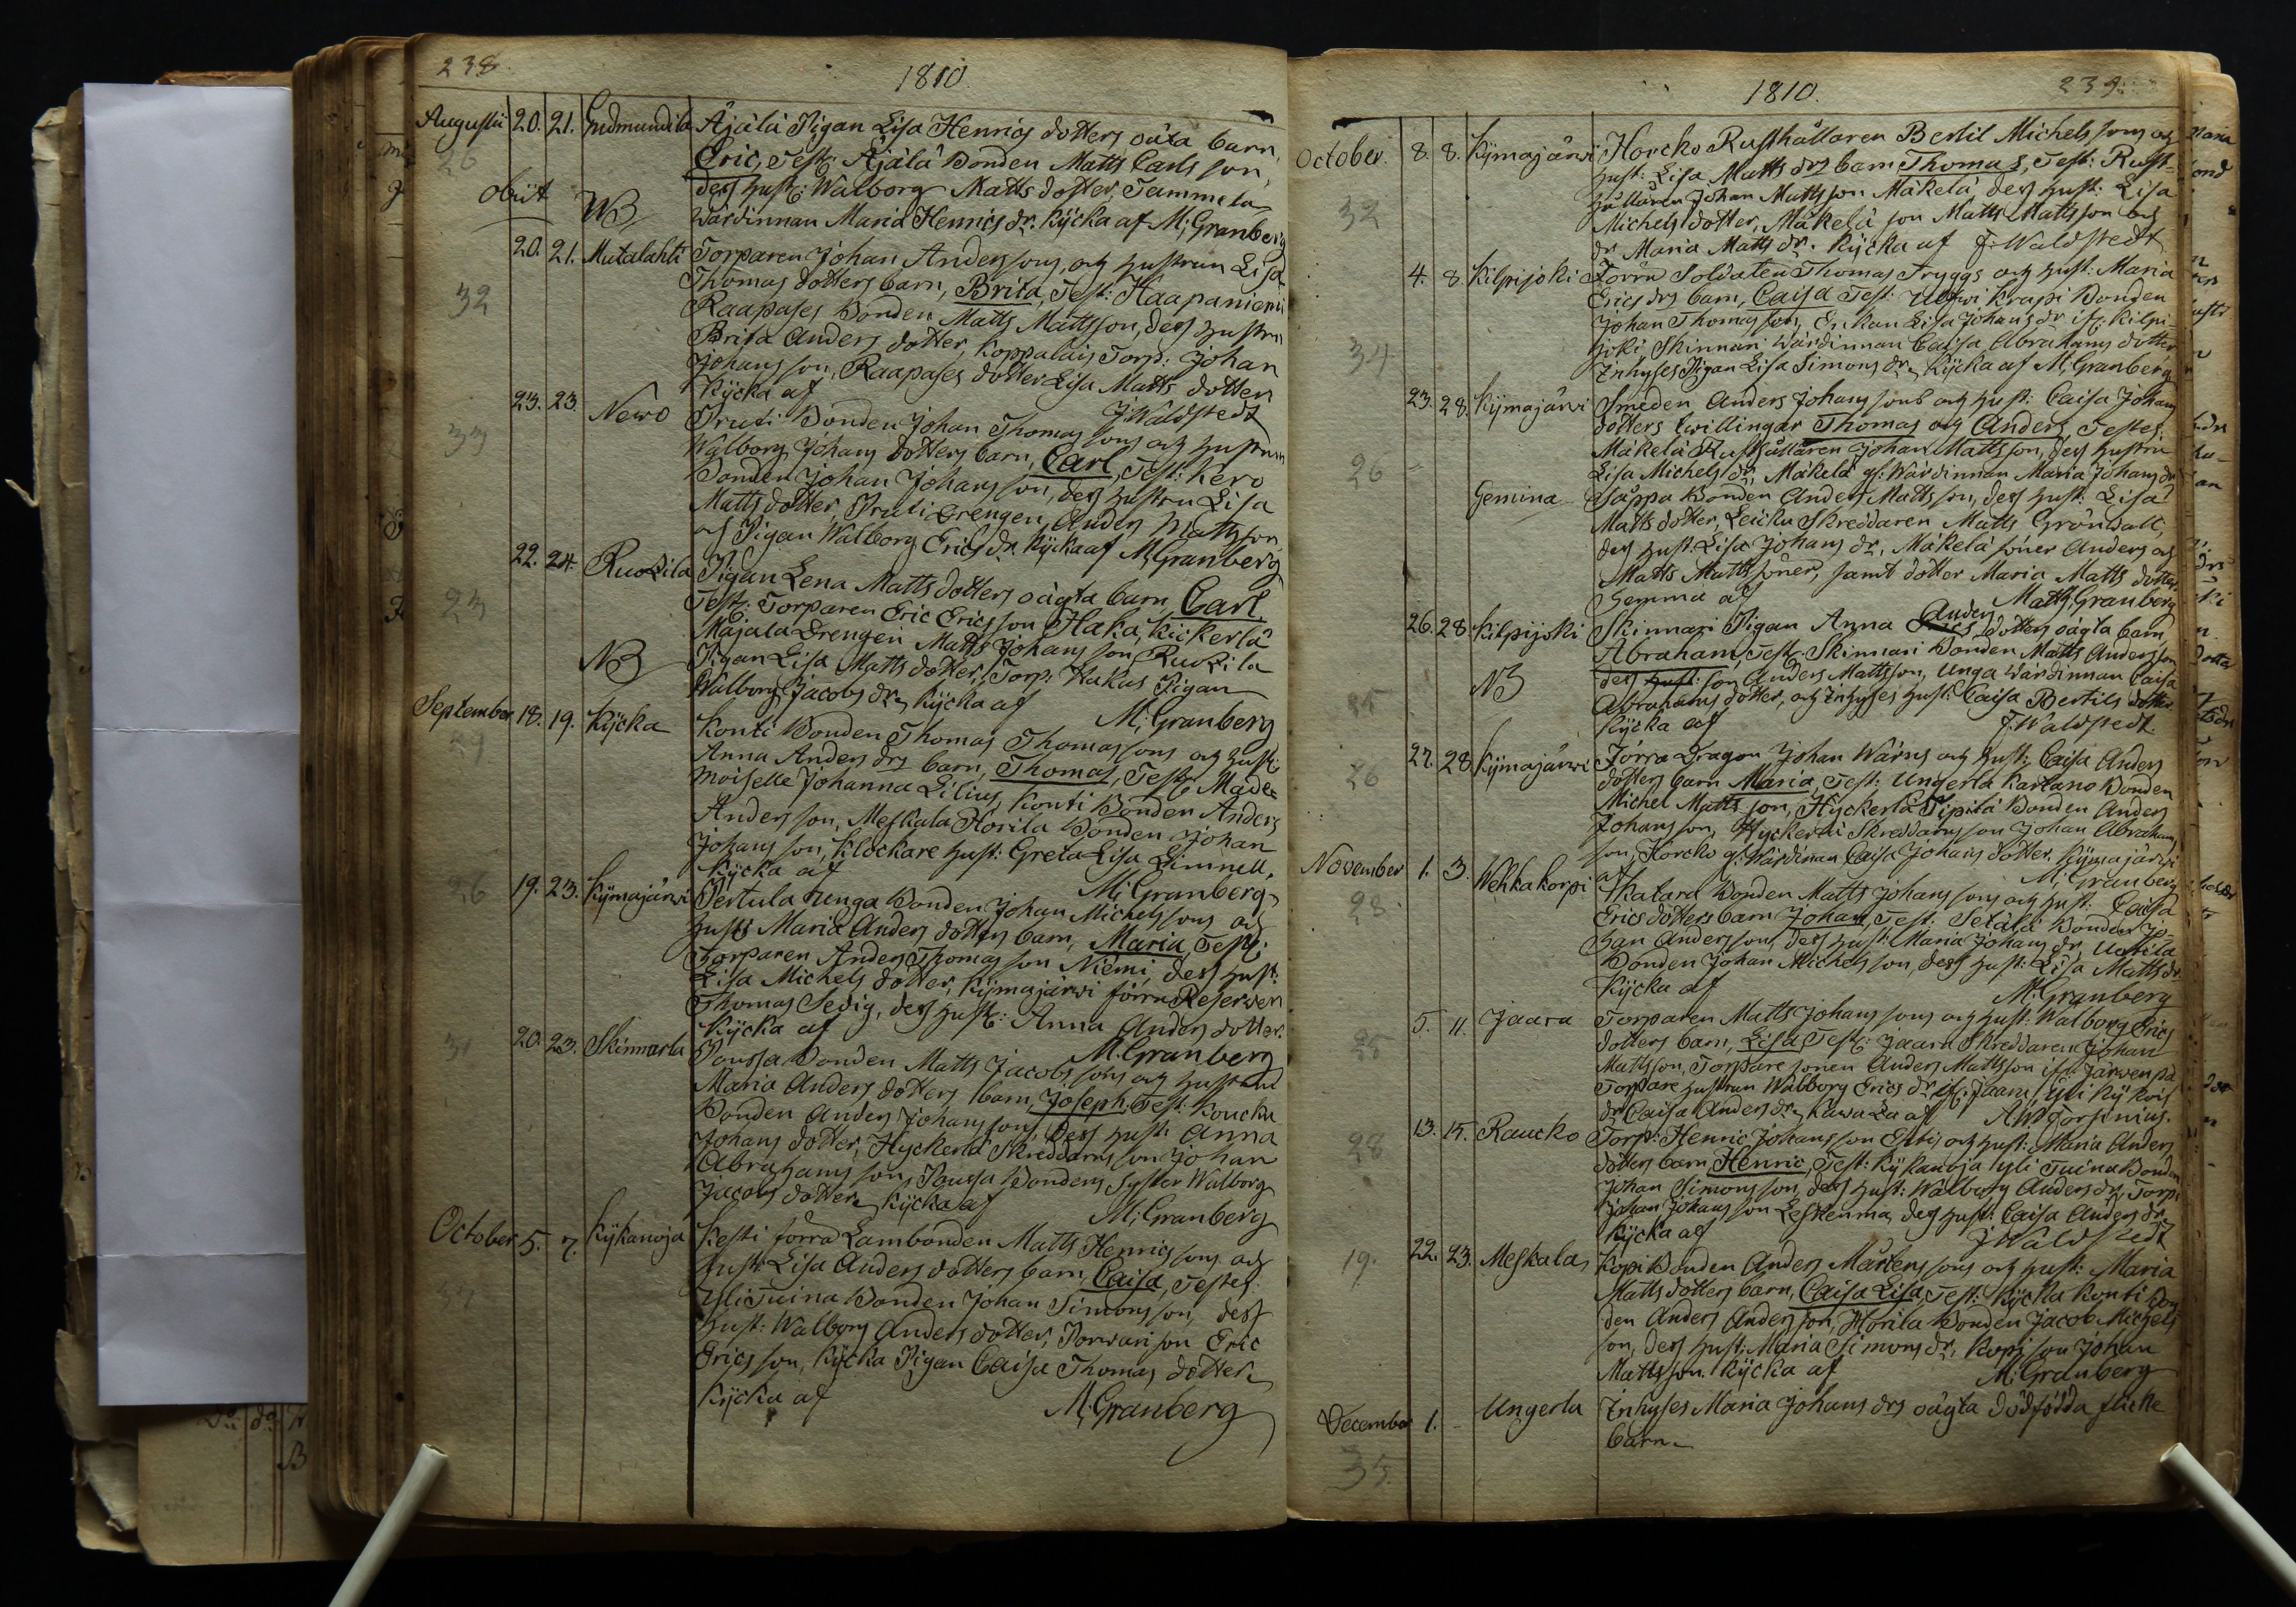 238.
1810.
Augusti 20. 21. Gudmundila Äjälä Pigan Lisa Henrics dotters oäkta barn,
26 Eric, Test: Äjälä Bonden Matts Carls son,
obiit NB dess hust: Walborg Matts dotter, Tammela
wärdinnan Maria Henrics dr. Kÿcka af M: Granberg
20. 21. Mutalahti Torparen Johan Anderssons, och hustrun Lisa
32 Thomas dotters barn, Brita, Test: Haapaniemi
Raapases Bonden Matts Mattsson, dess hustru
Brita Anders dotter, Koppalais Torp: Johan
Johans son, Raapases dotter Lisa Matts dotter
Kÿcka af J: Waldstedt
23. 23. Newo Pruti Bonden Johan Thomas sons och hustrun
33 Walborg Johans dotters barn, Carl, Test: Kero
Bonden Johan Johans son, dess hustru Lisa
Matts dotter, Pruti Drengen Anders Mattsson,
och Pigan Walborg Erics dr. Kÿcka af M: Granberg
22. 24. Ruodila Pigan Lena Matts dotters oägta barn, Carl
23 Test: Torparen Eric Ericsson Haka, Kickerlä
Majala Drengen Matts Johans son, Ruodila
NB Pigan Lisa Matts dotter, Torp: Hakus Pigan
Walborg Jacobs dr. Kÿcka af M: Granberg
September 18. 19. Kÿcka Konti Bonden Thomas Thomas sons och hust:
29 Anna Anders drs barn, Thomas, Test: Made-
moiselle Johanna Lilius, Konti Bonden Anders
Andersson, Meskala Horila Bonden Johan
Johans son, Klockare hust: Greta Lisa Limnell,
Kÿcka af M: Granberg
26 19. 23. Kÿmajärwi Pertula unga Bonden Johan Michelssons och
hust: Maria Anders dotters barn, Maria, Test:
Torparen Anders Thomas son Niemi, dess hust:
Lisa Michels dotter, Kÿmajärwi förra Reserven
Thomas Sedig, dess hust: Anna Anders dotter.
Kÿcka af M. Granberg
31 20. 23. Skinnarla Poussa Bonden Matts Jacobs sons och hustrun
Maria Anders dotters barn, Joseph, Test: Koucku
Bonden Anders Johans son, dess hust: Anna
Johans dotter, Hyckerlä Skreddarns son Johan
Abrahams son, Poussa Bondens syster Walborg
Jacobs dotter. Kÿcka af M: Granberg
October 5. 7. Kÿkanoja Kesti förra Lambonden Matts Henrics sons och
hust: Lisa Anders dotters barn, Caisa, Testes:
Yli Tuina Bonden Johan Simonsson, dess
hust: Walborg Anders dotter, Porwari son Eric
Ericsson, Kÿcka Pigan Caisa Thomas dotter.
Kÿcka af M: Granberg
1810. 239.
October. 8. 8. Kÿmajärwi Horcko Rusthållaren Bertil Michelssons och
hust: Lisa Matts drs barn Thomas, Test: Rust-
32 hållaren Johan Mattsson Mäkelä, dess hust: Lisa
Michels dotter, Mäkelä son Matts Mattsson och
dr. Maria Matts dr. Kÿcka af J: Waldstedt
4. 8. Kilpijoki Förra Soldaten Thomas Tryggs och hust: Maria
Erics drs barn, Caisa Test: Krapi Bonden
34 Johan Thomas son, Enkan Lisa Johans dr. if: Kilpi-
joki, Skinnari Wärdinnan Caisa Abrahams dotter
Inhyses Pigan Lisa Simons dr. Kÿcka af M: Granberg
23. 28. Kÿmajärwi Smeden Anders Johans sons och hust: Caisa Johans
dotters twillingar Thomas och Anders, Testes:
26 Mäkelä Rusthållaren Johan Mattsson, dess hustru
Lisa Michels dr, Mäkelä gl: Wärdinnan Maria Johans dr
Gemina Säppä Bonden Anders Mattsson, dess hust: Lisa
Matts dotter, Leicku Skreddaren Matts Grönwall,
dess hust: Lisa Johans dr, Mäkelä söner Anders och
Matts Mattssöner, samt dotter Maria Matts dotter
hemma af Matts Granberg
26. 28. Kilpijoki Skinnari Pigan Anna Anders dotters oägta barn,
Abraham, Test: Skinnari Bonden Matts Andersson
dess son Anders Mattsson, Unga Wärdinnan Caisa
35 NB Abrahams dotter, och Inhyses hust: Caisa Bertils dotter
Kÿcka af J. Waldstedt.
27. 28. Kÿmajärwi Förra Dragon Johan Wärns och hust: Caisa Anders
26 dotters barn Maria, Test: Ungerla Kartano Bonden
Michel Matts son, Hyckerlä Pipilä Bonden Anders
Johans son, Hyckerlä Skreddarns son Johan Abrahams
son, Horcko gl: Wärdinnan Caisa Johans dotter. Kÿmajärwi
af M: Granberg
November 1. 3. Wehkakorpi Skatara Bonden Matts Johans sons och hust: Caisa
23. Erics dotters barn Johan, Test: Setälä Bonden Jo-
han Andersson, dess hust: Maria Johans dr, Uotila
Bonden Johan Michelsson, dess hust: Lisa Matts dr.
Kÿcka af M: Granberg
5. 11. Jaara Torparen Matts Johans sons och hust: Walborg Erics
25 dotters barn, Lisa, Test: Jaara Skreddaren Johan
Mattsson, Torpare sonen Anders Mattsson if: Järwenpä
Torpare hustrun Walborg Erics dr. if: Jaara, Yli Kÿ
dr Caisa Anders dr. af
28 13. 15. Raucko Torp: Henric Johans son och hust: Maria Anders
dotters barn Henric, Test: Kÿkanoja Yli Tuina Bonden
Johan Simonsson, dess hust: Walborg Anders dr, Torp:
Johan Johans son Leskenma, dess hust: Caisa Anders dr.
Kÿcka af J Waldstedt
19. 22. 23. Meskala Kopi Bonden Anders Mårtens sons och hust: Maria
Matts dotters barn, Caisa Lisa, Test: Kÿcka Konti Bon-
den Anders Andersson, Horila Bonden Jacob Michels
son, dess hust: Maria Simons dr, Kopi son Johan
Mattsson. Kÿcka af M: Granberg
December 1. - Ungerla Inhyses Maria Johans drs oägta dödfödda flicke
35. barn.